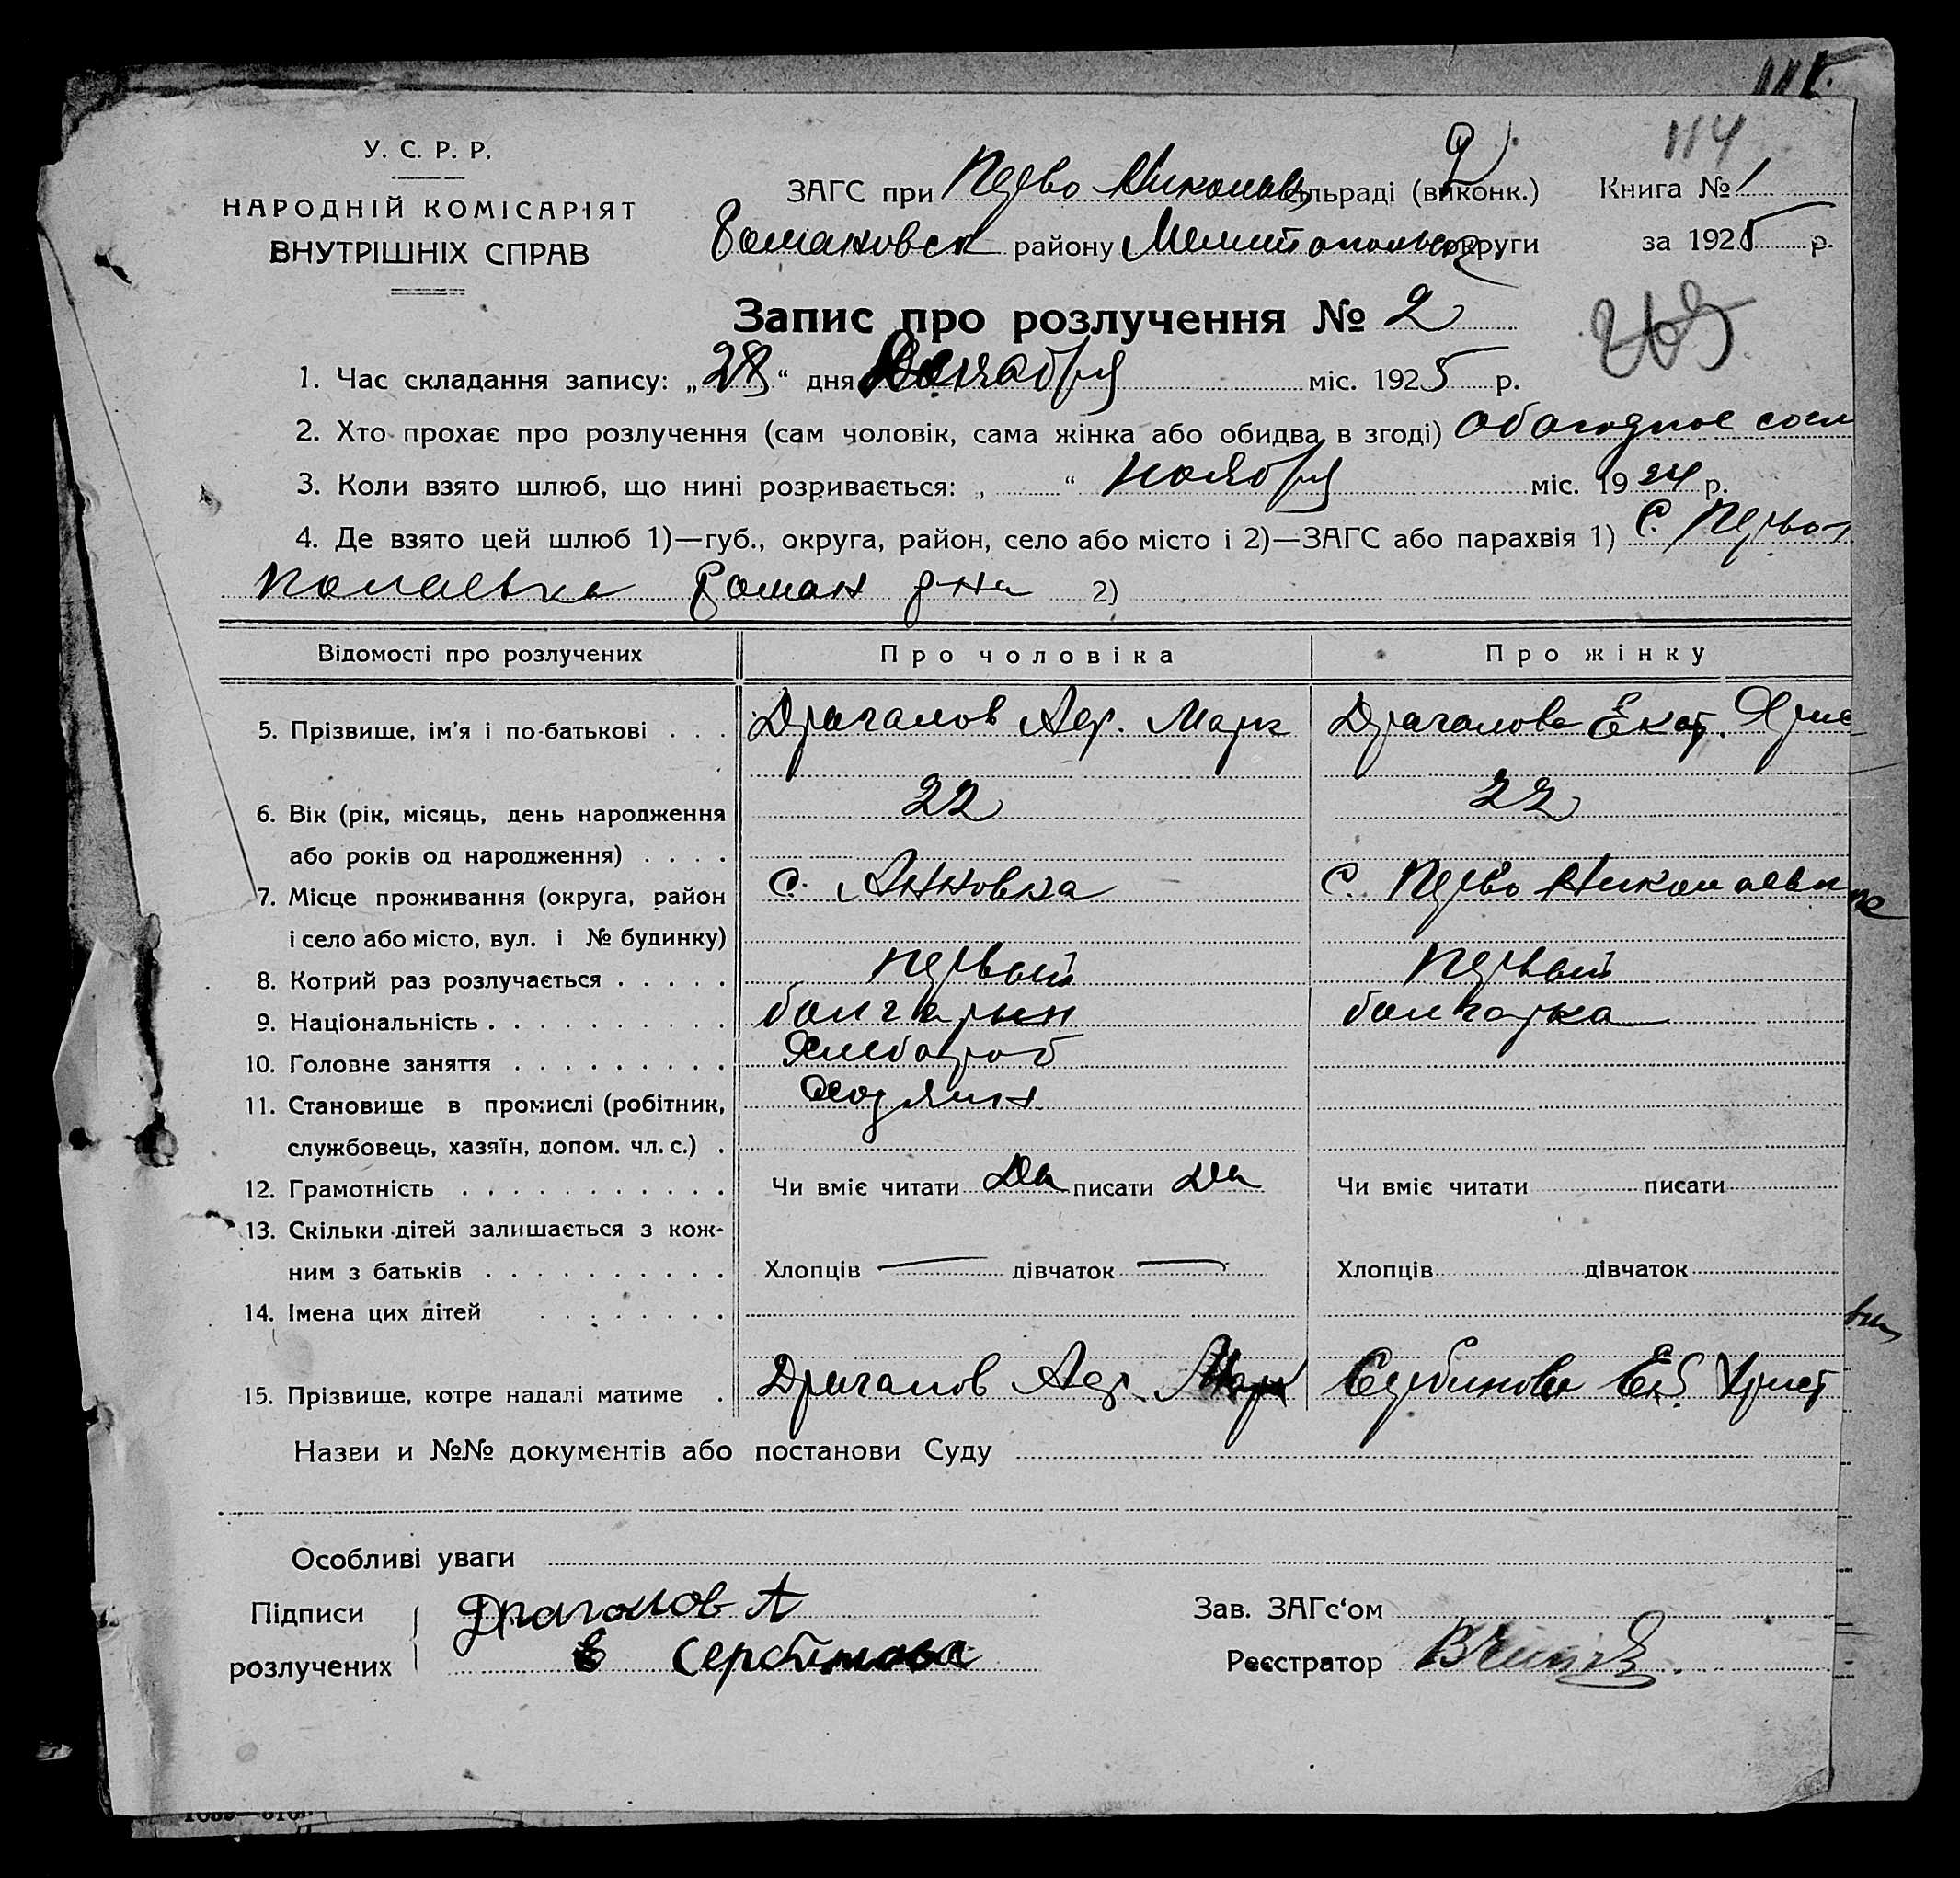 114
У. С. Р. Р.
НАРОДНІЙ КОМІСАРІЯТ
ВНУТРІШНІХ СПРАВ
ЗАГС при Перво Николаев сільраді (виконк.) Книга № 1
Романовск району Мелитопольск округи за 1925 р.
Запис про розлучення № 2
263
1. Час складання запису: „28“ дня міс. 1925 р.
2. Хто прохає про розлучення (сам чоловік, сама жінка або обидва в згоді) согл
3. Коли взято шлюб, що нині розривається: „ “ ноября міс. 1924 р.
4. Де взято цей шлюб 1)—губ., округа, район, село або місто і 2)—ЗАГС або парахвія 1) С. Перво-
Роман р-на 2)
Відомості про розлучених Про чоловіка Про жінку
5. Прізвище, ім'я і по-батькові . . . Драганов Аф. Марк Драганова Екат. Хрис
6. Вік (рік, місяць, день народження 22 22
або років од народження) . . . .
7. Місце проживання (округа, район с. Анновка с. Перво Николаевка
і село або місто, вул. і № будинку)
8. Котрий раз розлучається . . . . . первый первый
9. Національність . . . . . . . . . . болгарин болгарка
10. Головне заняття . . . . . . . . . Хлебороб
11. Становище в промислі (робітник, Хозяин
службовець, хазяїн, допом. чл. с.) .
12. Грамотність . . . . . . . . . . . Чи вміє читати Да писати Да Чи вміє читати писати
13. Скільки дітей залишається з кож-
ним з батьків . . . . . . . . . . Хлопців — дівчаток — Хлопців дівчаток
14. Імена цих дітей . . . . . . .
15. Прізвище, котре надалі матиме . Драганов Аф. Марк Сербинова Ек. Христ
Назви и №№ документів або постанови Суду
Особливі уваги
Підписи Драганов А Зав. ЗАГс‘ом
розлучених Сербинова Реєстратор